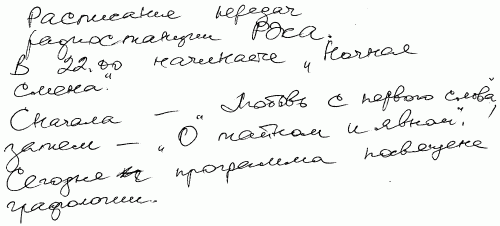 Расписание передач
радиостанции Рэка.
В 22.00 начинаете „Ночная
смена".
Сначала — „Любовь с первого слова",
затем — „О тайном и явном".
Сегодня программа посвещена
графологии.